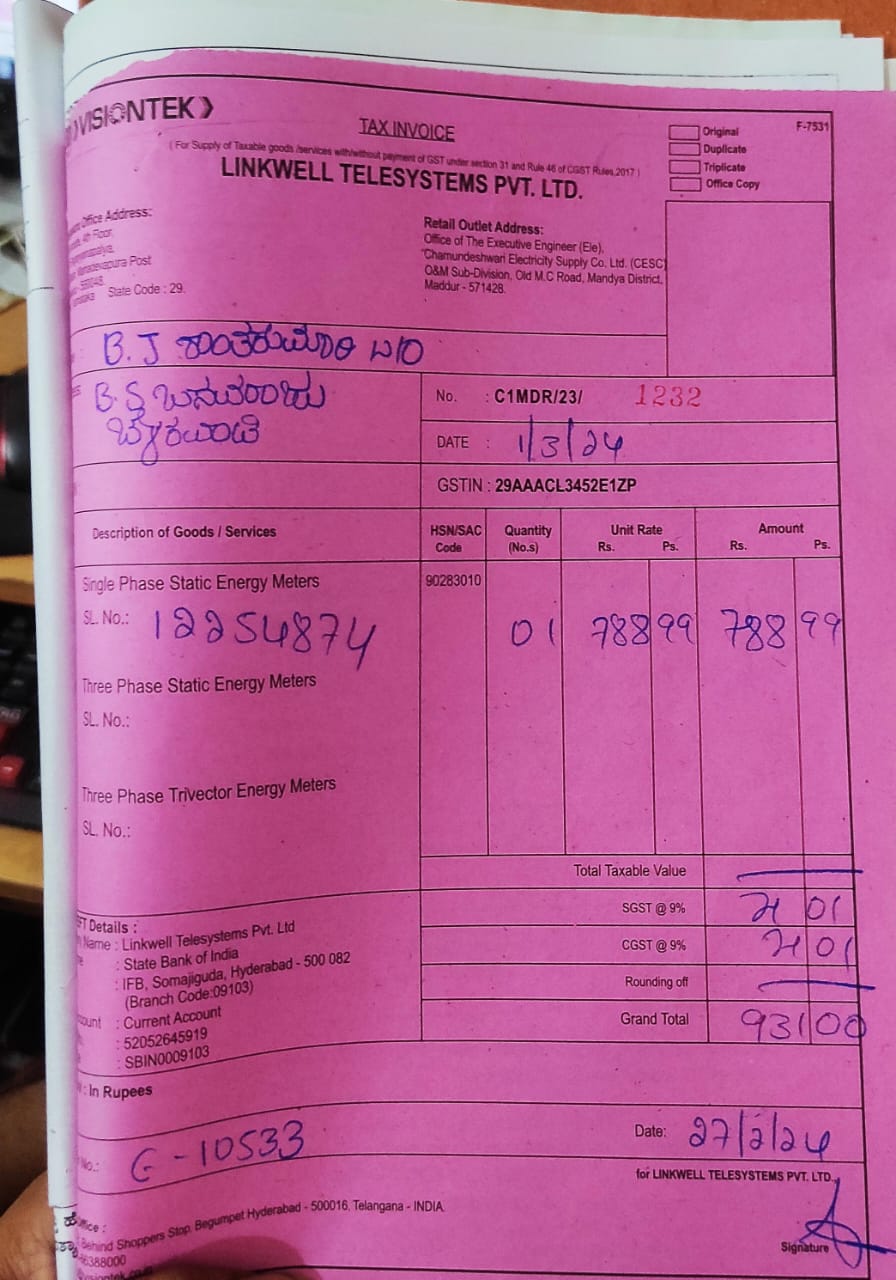 VISIONTEK
TAX INVOICE
( For Supply of Taxable goods /services with/without payment of GST under section 31 and Rule 46 of CGST Rules,2017 )
LINKWELL TELESYSTEMS PVT. LTD.
Original
Duplicate
Triplicate
Office Copy
F-7531
Office Address:
4th Floor,
Post
State Code : 29.
Retail Outlet Address:
Office of The Executive Engineer (Ele),
Chamundeshwari Electricity Supply Co. Ltd. (CESC)
O&M Sub-Division, Old M.C Road, Mandya District,
Maddur - 571428.
B. J ಕಾಂತಕುಮಾರಿ W/O
B. S ಬಸವರಾಜು
No. : C1MDR/23/ 1232
DATE : 1/3/24
GSTIN : 29AAACL3452E1ZP
Description of Goods / Services HSN/SAC Code Quantity (No.s) Unit Rate Rs. Ps. Amount Rs. Ps.
Single Phase Static Energy Meters 90283010
SL. No.: 12254874 01 788 99 788 99
Three Phase Static Energy Meters
SL. No.:
Three Phase Trivector Energy Meters
SL. No.:
Total Taxable Value
SGST @ 9% 71 01
CGST @ 9% 71 01
Rounding off
Grand Total 931 00
Details :
Name : Linkwell Telesystems Pvt. Ltd
: State Bank of India
: IFB, Somajiguda, Hyderabad - 500 082
(Branch Code:09103)
: Current Account
: 52052645919
: SBIN0009103
: In Rupees
No.: G-10533
Date: 27/2/24
for LINKWELL TELESYSTEMS PVT. LTD.,
Behind Shoppers Stop, Begumpet Hyderabad - 500016, Telangana - INDIA.
Signature